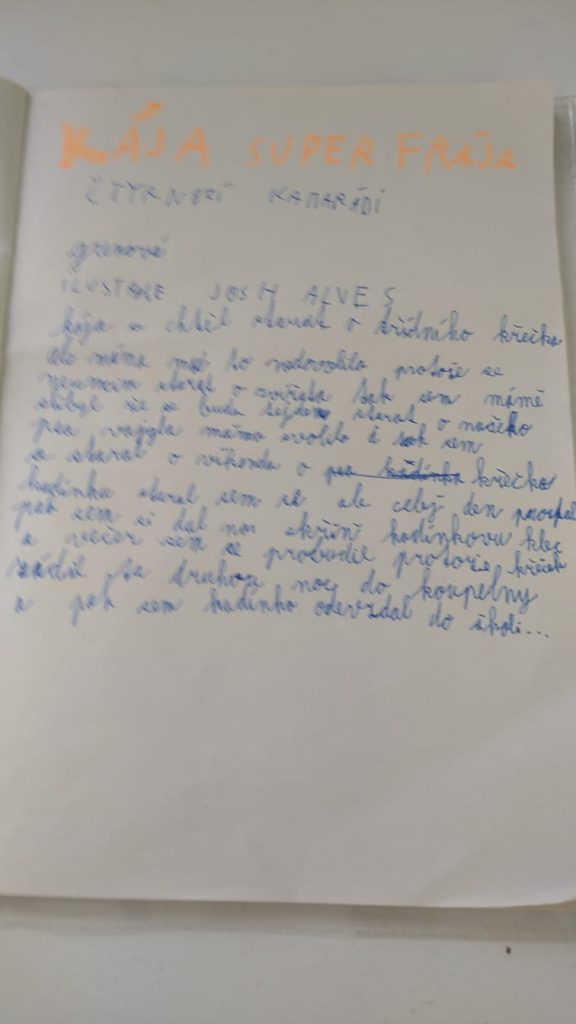 KÁJA SUPER FRÁJA
ČTYRNOZÍ KAMARÁDI
ILUSTRACE JOSH ALVES
kája se chtěl starat o třídního křečka
ale máma mě to nedovolila protože se
neumim starat o zvířata tak sem mámě
slíbyl že se budu týden starat o našeho
psa vajgla máma svolila i tak sem
se staral o víkendu o křečka
hudinku staral sem se ale celej den
pak sem si dal na skříň hudinkovu klec
a večer sem se probudil protože křeček
řádil šel druhou noc do koupelny
a pak sem hudinko odevzdal do školi...